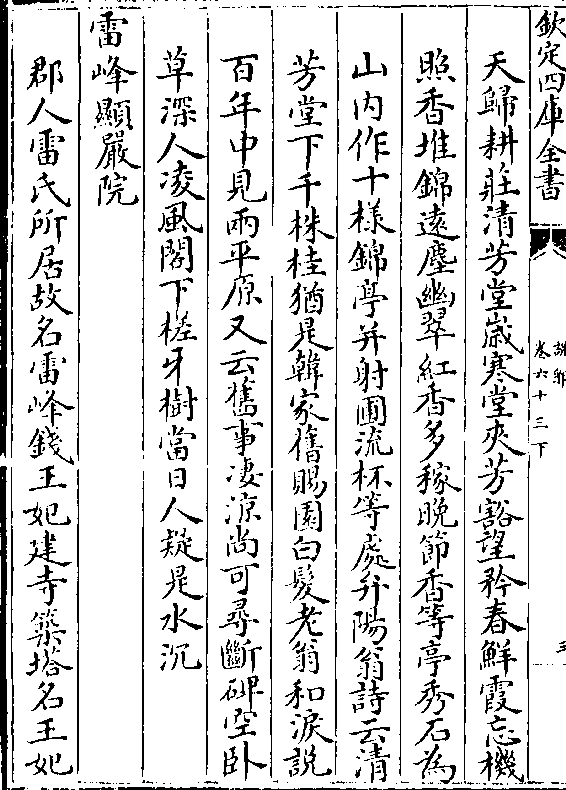 欽定四庫全書
說郛
卷六十三下
三
天歸耕莊清芳堂嵗寒堂夾芳豁望矜春鮮霞忘機
照香堆錦遠塵幽翠紅香多稼晚節香等亭秀石為
山内作十樣錦亭并射圃流杯等處弁陽翁詩云清
芳堂下千株桂猶是韓家舊賜園白髮老翁和淚説
百年中見兩平原又云舊事凄涼尚可尋斷碑空卧
草深人凌風閣下槎牙樹當日人疑是水沉
雷峰顯嚴院
郡人雷氏所居故名雷峰錢王妃建寺築塔名王妃